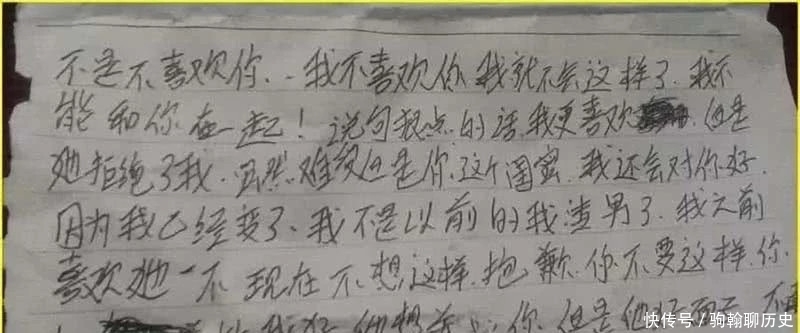 不是不喜欢你..我不喜欢你我就不会这样了.我不
能和你在一起！说句狠点的话.我更喜欢 但是
她拒绝了我.虽然难受但是你这个闺蜜.我还会对你好.
因为我已经变了.我不是以前的我渣男了.我之前
喜欢她一不现在不想这样.抱歉.你不要这样.你
我好他想 你.但是他
快传号/驹翰聊历史